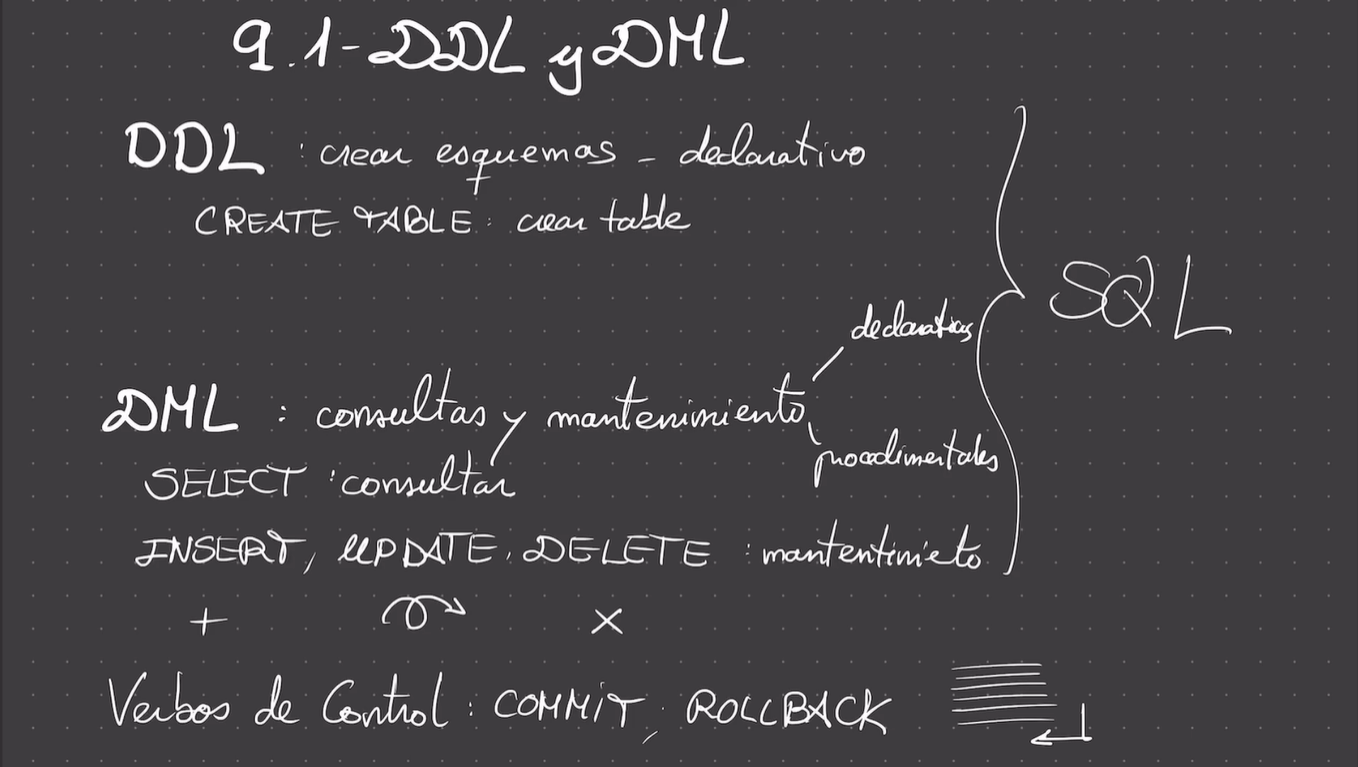 9.1-DDL y DML
DDL : crear esquemas - declarativo
CREATE TABLE : crear table
SQL
declarativas
DML : consultas y mantenimiento
procedimentales
SELECT : consultar
INSERT, UPDATE, DELETE : mantentimieto
+ ×
Verbos de Control : COMMIT, ROLLBACK